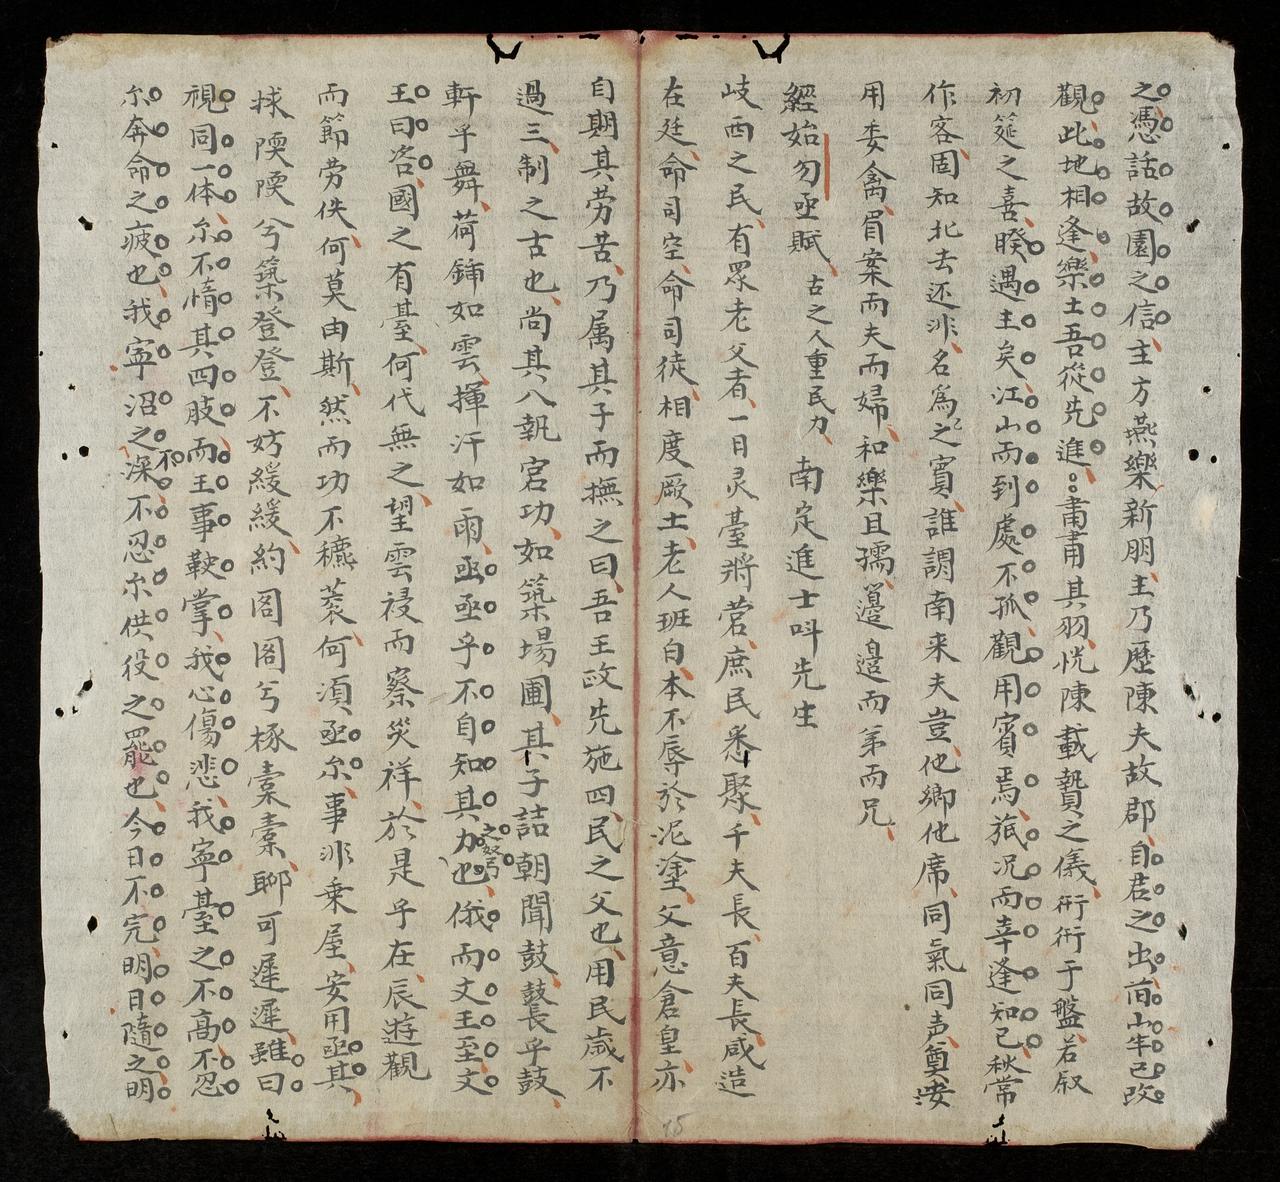 之憑話故園之信主方燕樂新朋主乃歷陳夫故郡自君之出前山牢已改
觀此地相逢樂土吾從先進肅肅其羽恍陳載贄之儀衎衎于盤若叙
初筵之喜睽遇主矣江山而到處不孤觀用賓焉旅况而幸逢知已秋常
作客固知北去还非名為之賓誰謂南来夫豈他鄉他席同氣同声奠
用委禽眉案而夫而婦和樂且孺籩邉而弟而兄
經始勿亟賦 古之人重民力 南定進士呌先生
岐西之民有眾老父者一日灵臺將营庶民悉聚千夫長百夫長咸造
在廷命司空命司徒相度厥土老人班白本不辱於泥塗父意倉皇亦
自期其劳苦乃属其子而撫之曰吾王政先施四民之父也用民歲不
過三制之古也尚其八執宮功如築場圃其子詰朝聞鼓鼛乎鼓
軒乎舞荷鍤如雲揮汗如雨亟亟乎不自知其力之怒也俄而文王至文
王曰咨國之有臺何代無之望雲祲而察災祥於是乎在辰遊觀
而節劳佚何莫由斯然而功不穮蓘何須亟尔事非乗屋安用亟其
捄陾陾兮築登登不妨緩緩約閣閣兮椓橐橐聊可遲遲雖曰
視同一体尔不惰其四肢而王事鞅掌我心傷悲我寧臺之不高不忍
尔奔命之疲也我寧沼之不深不忍尔供役之罷也今日不完明日隨之明